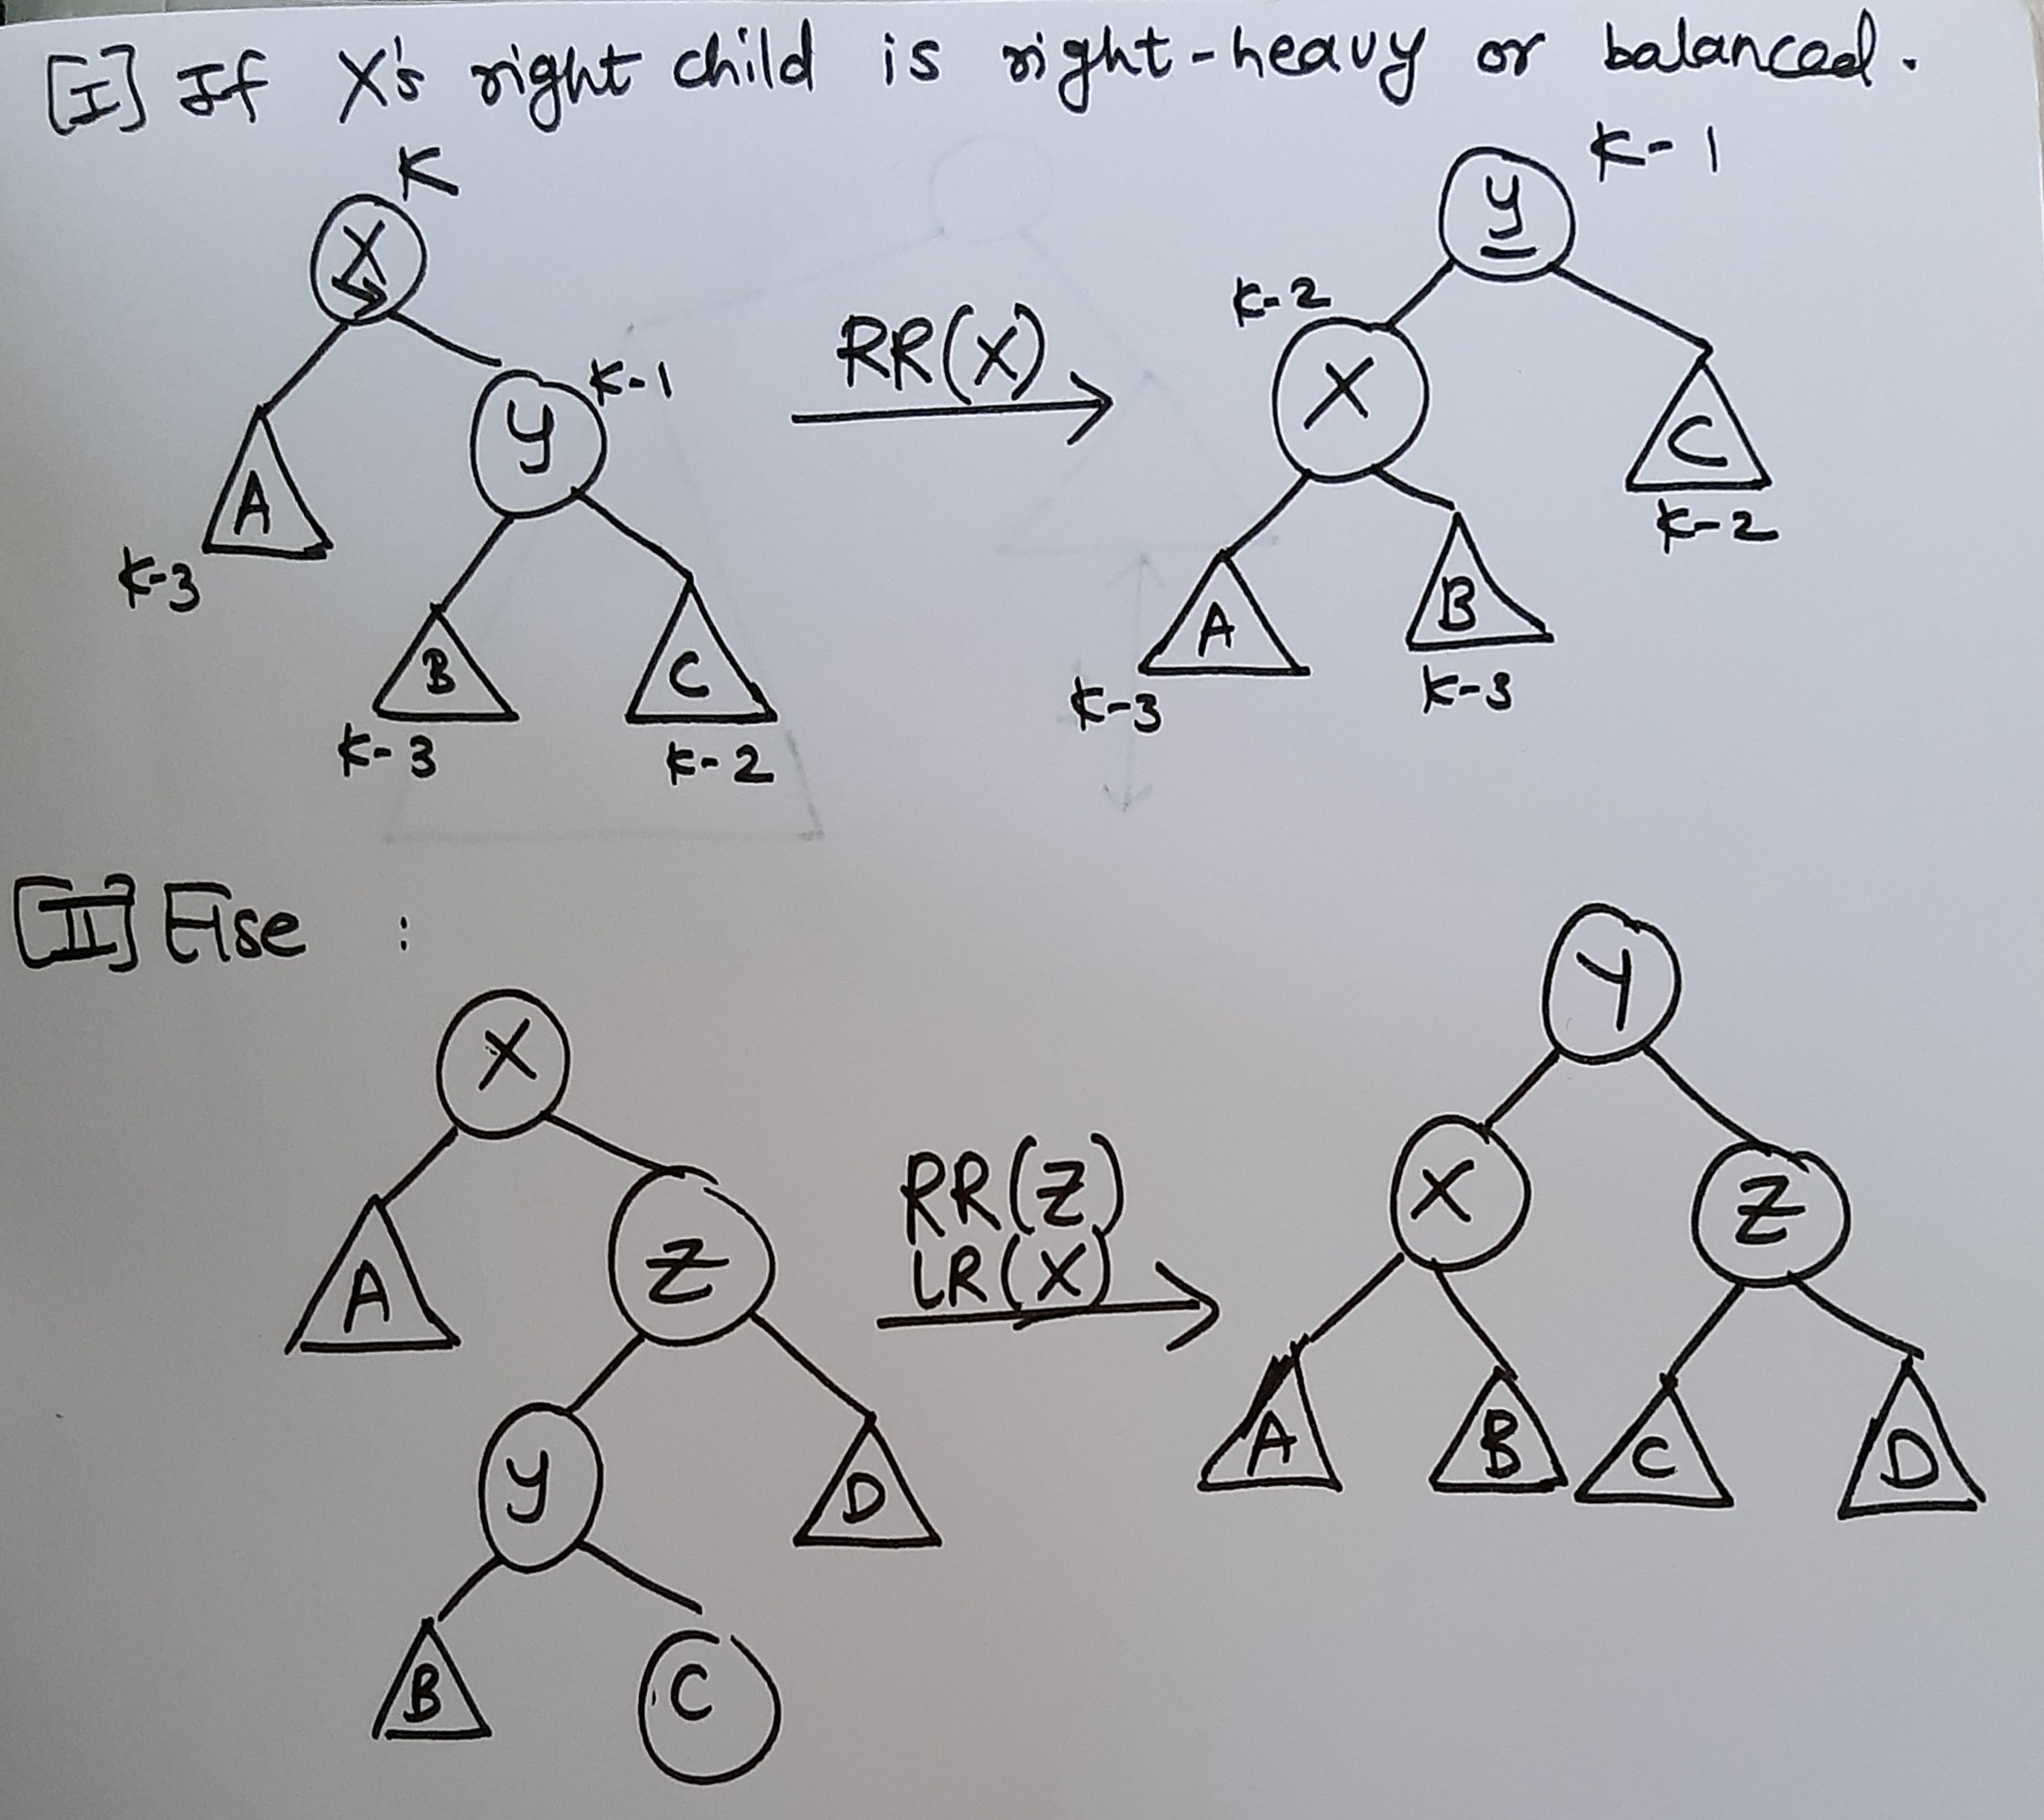 [I] If X's right child is right-heavy or balanced.
K
X
K-1
Y
A
K-3
B
K-3
C
K-2
RR(X)
K-1
Y
K-2
X
C
K-2
A
K-3
B
K-3
[II] Else :
X
A
Z
Y
D
B
C
RR(Z)
LR(X)
Y
X
Z
A
B
C
D